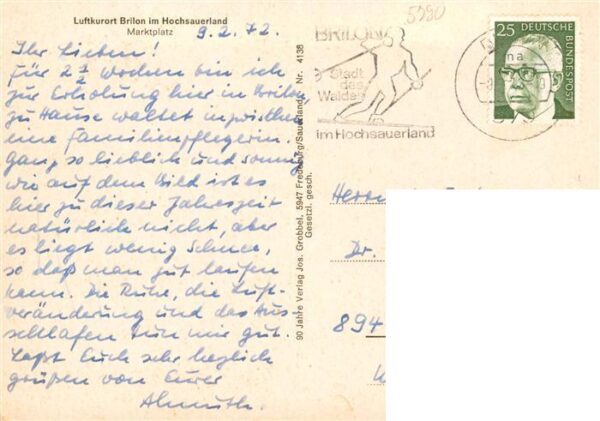 Luftkurort Brilon im Hochsauerland
Marktplatz
9.2.72.
Ihr Lieben!
Für 2½ Wochen bin ich
zur Erholung hier in Brilon
zu Hause waltet inzwischen
eine Familienpflegerin.
Ganz so lieblich und sonnig
wie auf dem Bild ist es
hier zu dieser Jahreszeit
natürlich nicht, aber
es liegt wenig Schnee,
so daß man gut laufen
kann. Die Ruhe, die Luft-
veränderung und das Aus-
schlafen tun mir gut.
Laßt Euch sehr herzlich
grüßen von Eurer
Almuth.
90 Jahre Verlag Jos. Grobbel, 5947 Fredeburg/Sauerland, Nr. 4138
Gesetzl. gesch.
5990
BRILON
Stadt
des
Waldes
im Hochsauerland
25 DEUTSCHE
BUNDESPOST
Herrn
Dr.
894